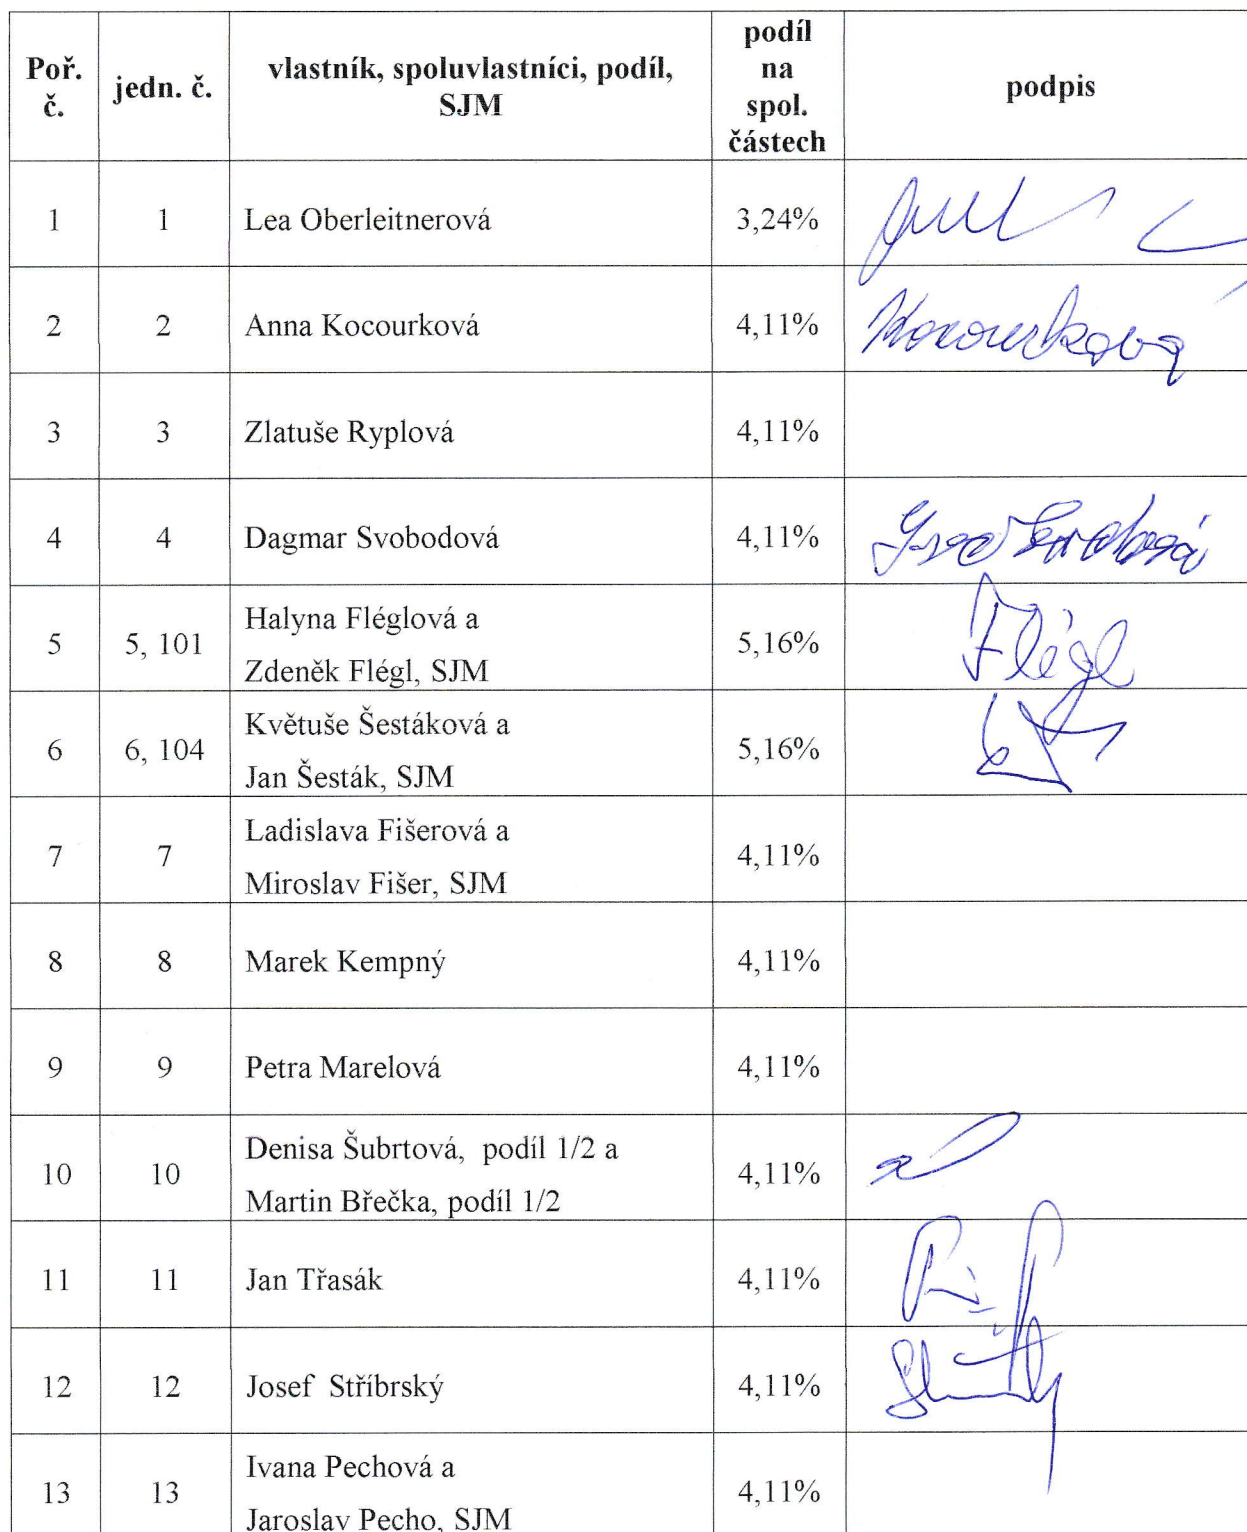 Poř. č.
jedn. č.
vlastník, spoluvlastníci, podíl, SJM
podíl na spol. částech
podpis
1 1 Lea Oberleitnerová 3,24%
2 2 Anna Kocourková 4,11% Kocourková
3 3 Zlatuše Ryplová 4,11%
4 4 Dagmar Svobodová 4,11%
5 5, 101 Halyna Fléglová a
Zdeněk Flégl, SJM 5,16% Flégl
6 6, 104 Květuše Šestáková a
Jan Šesták, SJM 5,16%
7 7 Ladislava Fišerová a
Miroslav Fišer, SJM 4,11%
8 8 Marek Kempný 4,11%
9 9 Petra Marelová 4,11%
10 10 Denisa Šubrtová, podíl 1/2 a
Martin Břečka, podíl 1/2 4,11%
11 11 Jan Třasák 4,11%
12 12 Josef Stříbrský 4,11%
13 13 Ivana Pechová a
Jaroslav Pecho, SJM 4,11%